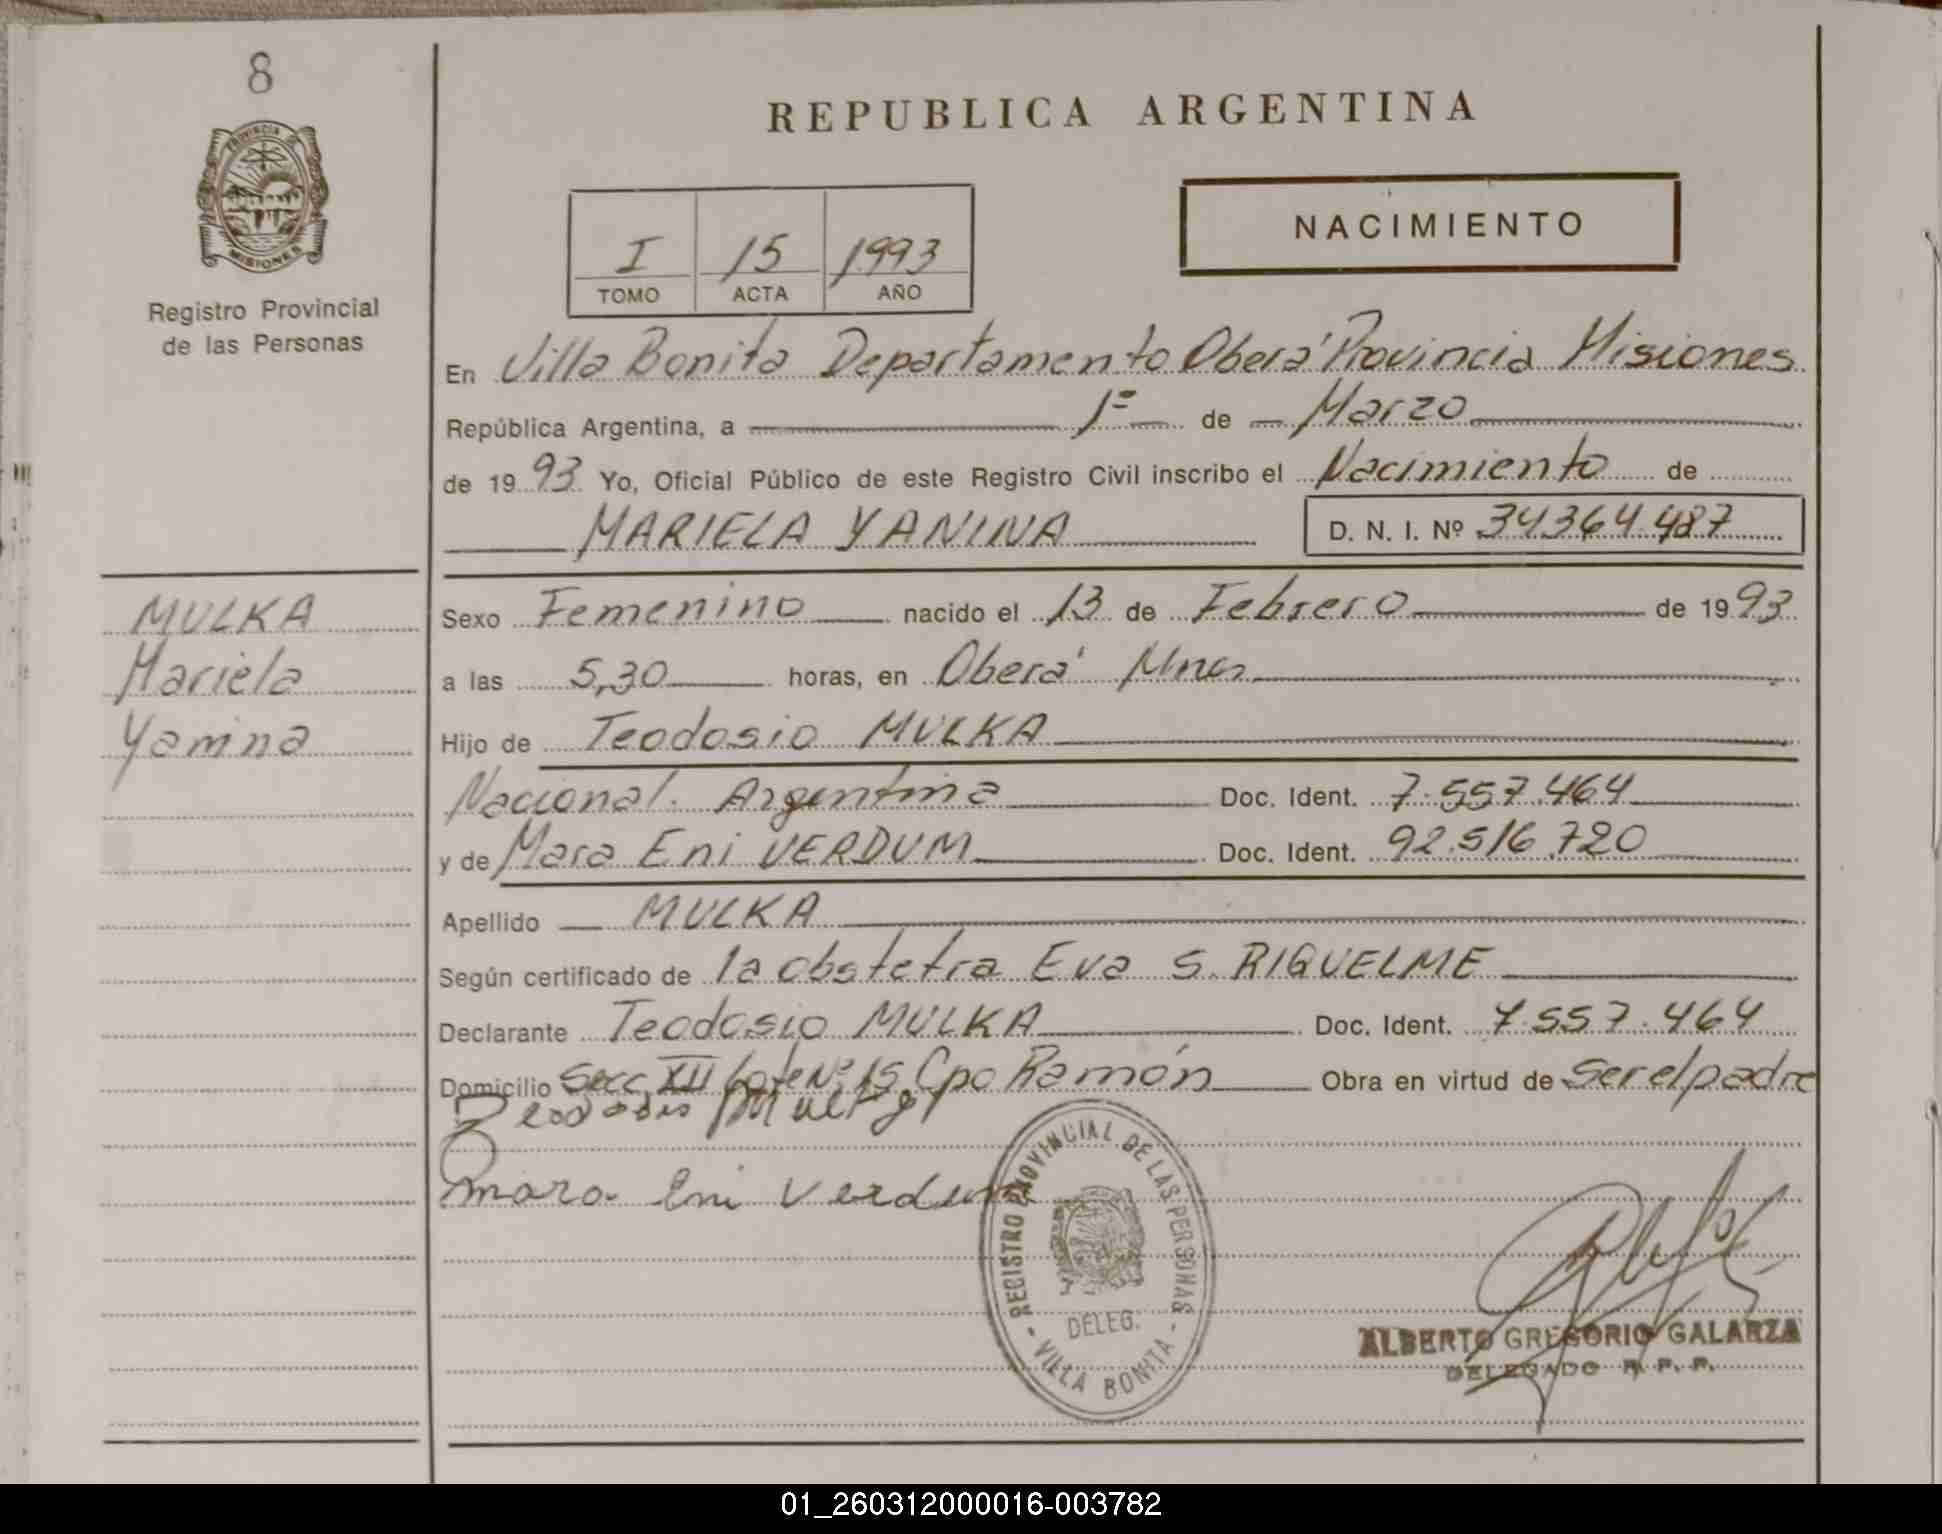 8
PROVINCIA DE
MISIONES
Registro Provincial
de las Personas
MULKA
Mariela
Yanina
REPUBLICA ARGENTINA
I 15 1993
TOMO ACTA AÑO
NACIMIENTO
En Villa Bonita Departamento Oberá Provincia Misiones
República Argentina, a 1º de Marzo
de 1993 Yo, Oficial Público de este Registro Civil inscribo el Nacimiento de
MARIELA YANINA D. N. I. Nº 34.364.487
Sexo Femenino nacido el 13 de Febrero de 1993
a las 5,30 horas, en Oberá Mnes
Hijo de Teodosio MULKA
Nacional. Argentina Doc. Ident. 7.557.464
y de Mara Eni VERDUM Doc. Ident. 92.516.720
Apellido MULKA
Según certificado de la obstetra Eva S. RIQUELME
Declarante Teodosio MULKA Doc. Ident. 7.557.464
Domicilio Secc XII Lote Nº 15 Cpo Ramón Obra en virtud de ser el padre
Teodosio Mulka
Mara Eni Verdum
REGISTRO PROVINCIAL DE LAS PERSONAS
DELEG.
- VILLA BONITA -
ALBERTO GREGORIO GALARZA
DELEGADO R. P. P.
01_260312000016-003782